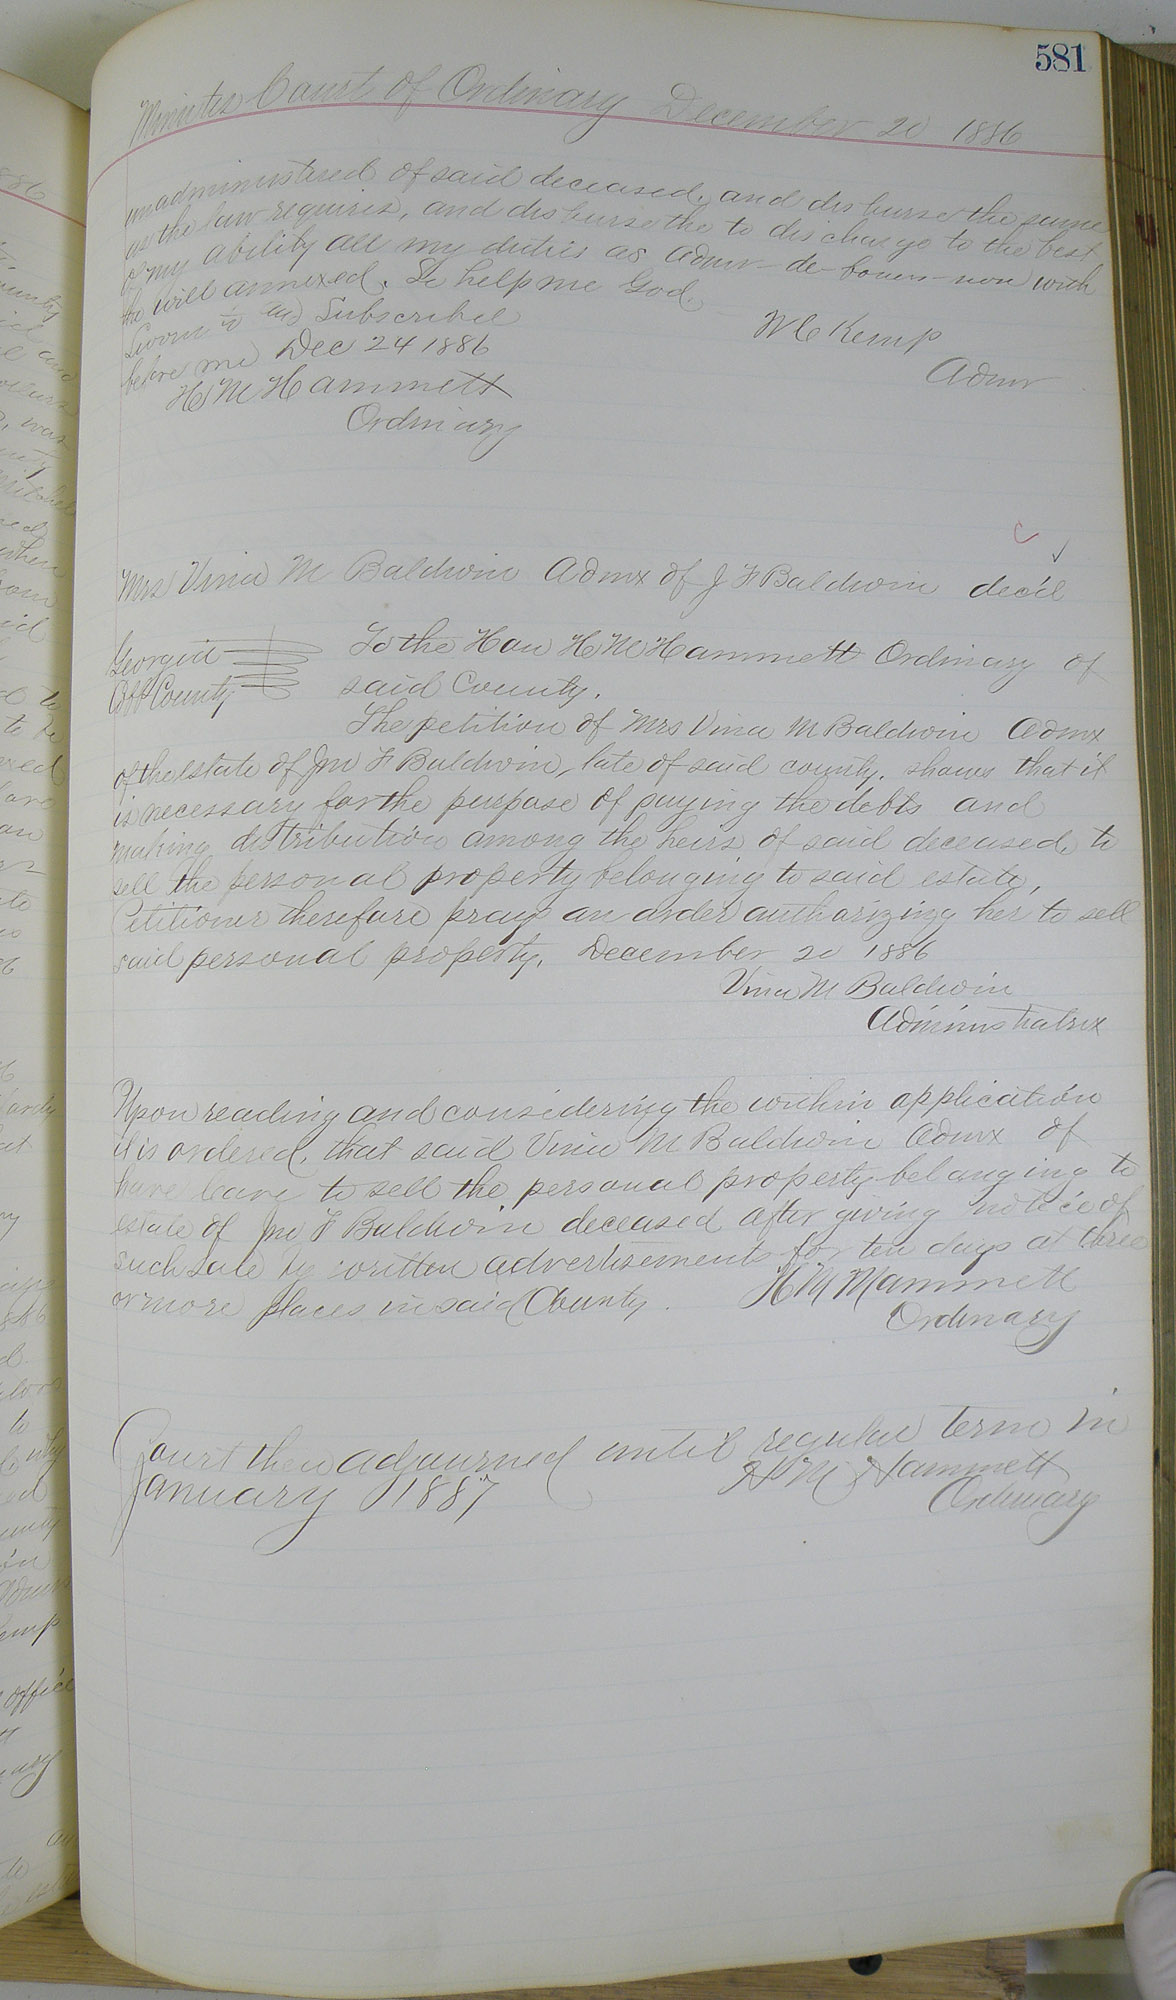 581
Minutes Court of Ordinary December 20 1886
unadministered of said deceased, and disburse the same
as the law requires, and disburse the to discharge to the best
of my ability all my duties as Admr de bonus non with
the will annexed. So help me God.
Sworn to and Subscribed
W C Kemp
before me Dec 24 1886
Admr
H M Hammett
Ordinary
Mrs Vina M Baldwin Admx of J F Baldwin dec'd
Georgia
To the Hon H M Hammett Ordinary of
County
said County.
The petition of Mrs Vina M Baldwin Admx
of the estate of Jno F Baldwin, late of said county, shows that it
is necessary for the purpose of paying the debts and
making distribution among the heirs of said deceased, to
sell the personal property belonging to said estate,
Petitioner therefore prays an order authorizing her to sell
said personal property. December 20 1886
Vina M Baldwin
Administratrix
Upon reading and considering the within application
it is ordered, that said Vina M Baldwin Admx of
have leave to sell the personal property belonging to
estate of Jno F Baldwin deceased after giving notice of
such sale by written advertisements for ten days at three
or more places in said County.
H M Hammett
Ordinary
Court then adjourned until regular term in
January 1887
H M Hammett
Ordinary